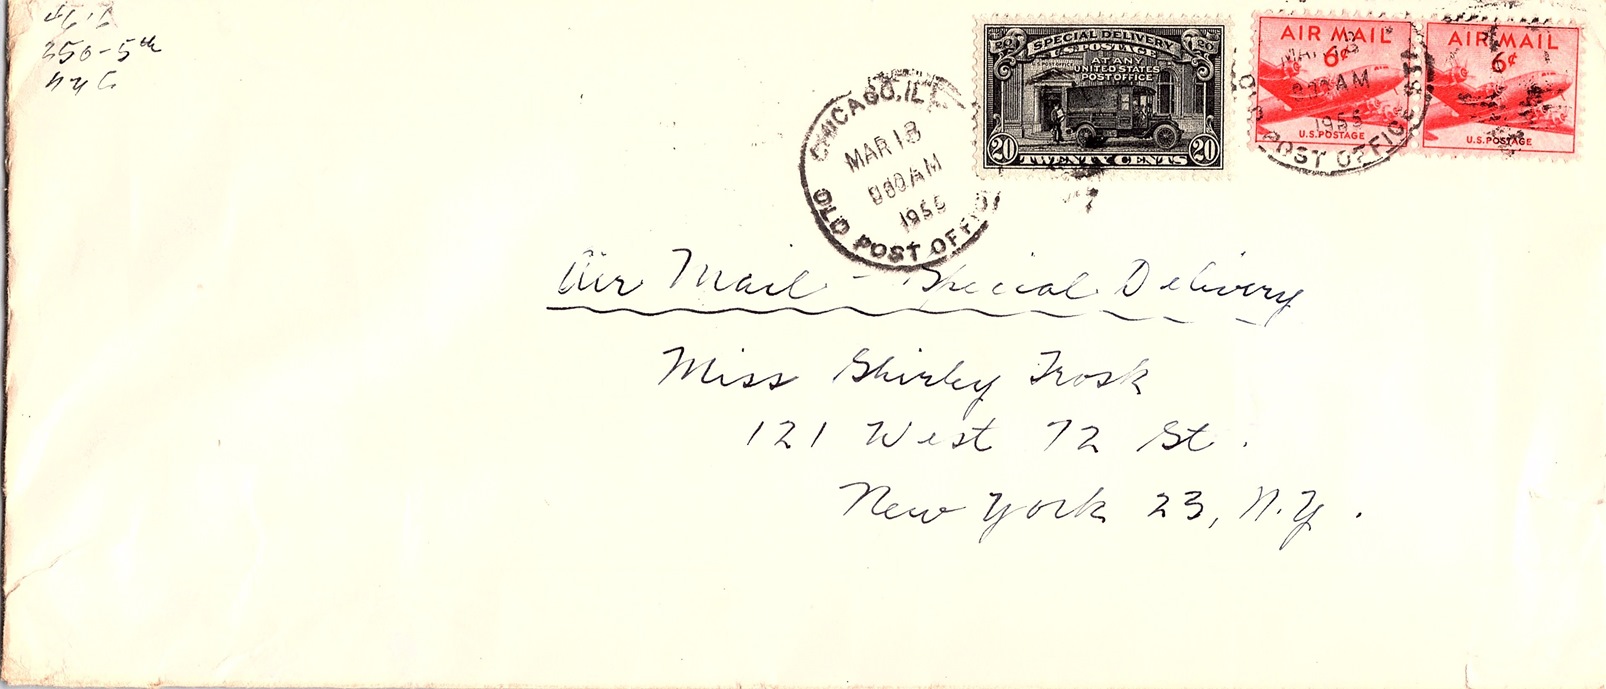 350-5th
NYC
SPECIAL DELIVERY
U.S. POSTAGE
AT ANY
UNITED STATES
POST OFFICE
20 TWENTY CENTS 20
AIR MAIL
6¢
U.S. POSTAGE
AIR MAIL
6¢
U.S. POSTAGE
CHICAGO, IL
MAR 18
AM
1955
OLD POST OFFICE
MAR 18
AM
1955
OLD POST OFFICE
Air Mail - Special Delivery
Miss Shirley Trosk
121 West 72 St.
New York 23, N.Y.